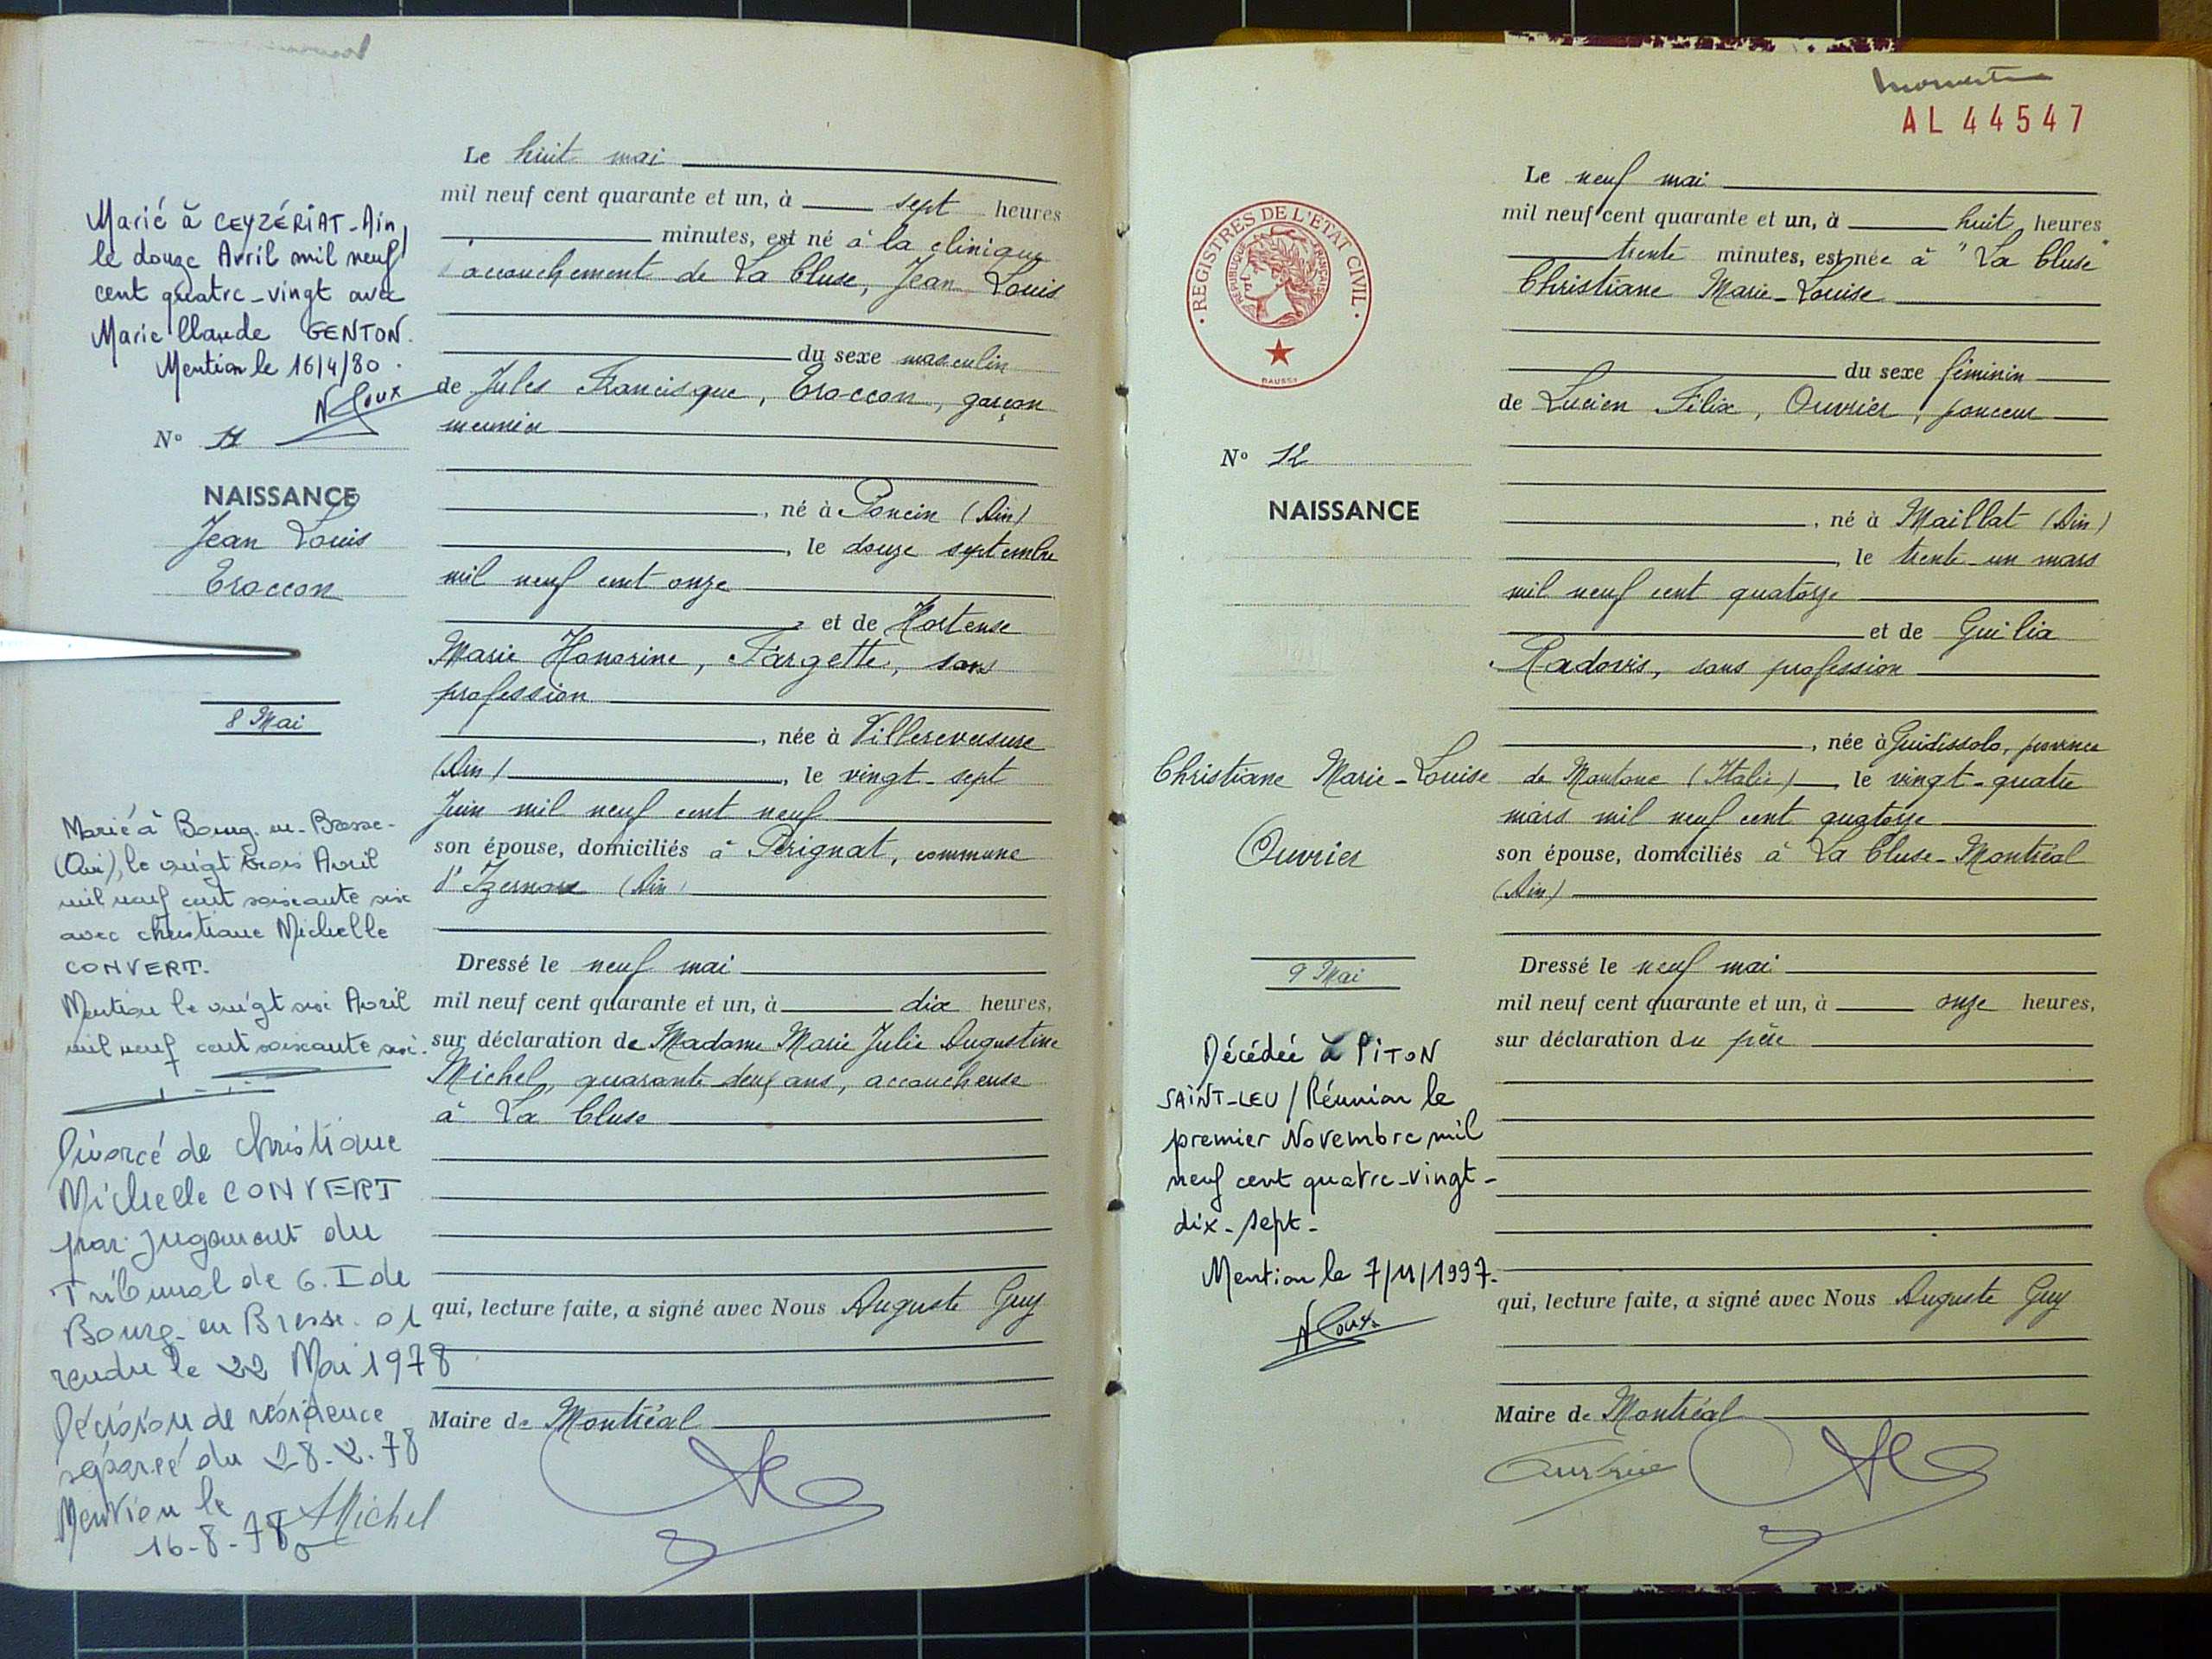 Marié à CEYZÉRIAT-Ain,
le douze Avril mil neuf
cent quatre-vingt avec
Marie Claude GENTON.
Mention le 16/4/80.
N° 11
NAISSANCE
Jean Louis
Troccon
8 Mai
Marié à Bourg-en-Bresse-
(Ain), le vingt trois Avril
mil neuf cent soixante six
avec Christiane Michelle
CONVERT.
Mention le vingt six Avril
mil neuf cent soixante six.
Divorcé de Christiane
Michelle CONVERT
par jugement du
Tribunal de G. I de
Bourg-en Bresse 01
rendu le 22 Mai 1978
Décision de résidence
séparée du 28.2.78
Mention le
16-8-78 Michel
Le huit mai
mil neuf cent quarante et un, à sept heures
minutes, est né à la clinique
d'accouchement de La Cluse, Jean Louis
du sexe masculin
de Jules Francisque, Troccon, garçon
meunier
, né à Poncin (Ain)
, le douze septembre
mil neuf cent onze
et de Hortense
Marie Honorine, Fargette, sans
profession
, née à Villereversure
(Ain), le vingt-sept
Juin mil neuf cent neuf
son épouse, domiciliés à Pérignat, commune
d'Izernore (Ain)
Dressé le neuf mai
mil neuf cent quarante et un, à dix heures,
sur déclaration de Madame Marie Julie Augustine
Michel, quarante deux ans, accoucheuse
à La Cluse
qui, lecture faite, a signé avec Nous Auguste Guy
Maire de Montréal
AL 44547
REGISTRES DE L'ETAT CIVIL
REPUBLIQUE FRANÇAISE
N° 12
NAISSANCE
Christiane Marie-Louise
Ouvrier
9 Mai
Décédée à PITON
SAINT-LEU / Réunion le
premier Novembre mil
neuf cent quatre-vingt-
dix-sept-
Mention le 7/11/1997.
Le neuf mai
mil neuf cent quarante et un, à huit heures
trente minutes, est née à "La Cluse"
Christiane Marie-Louise
du sexe féminin
de Lucien Félix, Ouvrier, ponceur
, né à Maillat (Ain)
, le trente-un mars
mil neuf cent quatorze
et de Guilia
Radovis, sans profession
, née à Guidissolo, province
de Mantoue (Italie), le vingt-quatre
mars mil neuf cent quatorze
son épouse, domiciliés à La Cluse-Montréal
(Ain)
Dressé le neuf mai
mil neuf cent quarante et un, à onze heures,
sur déclaration du père
qui, lecture faite, a signé avec Nous Auguste Guy
Maire de Montréal
Ouvrier